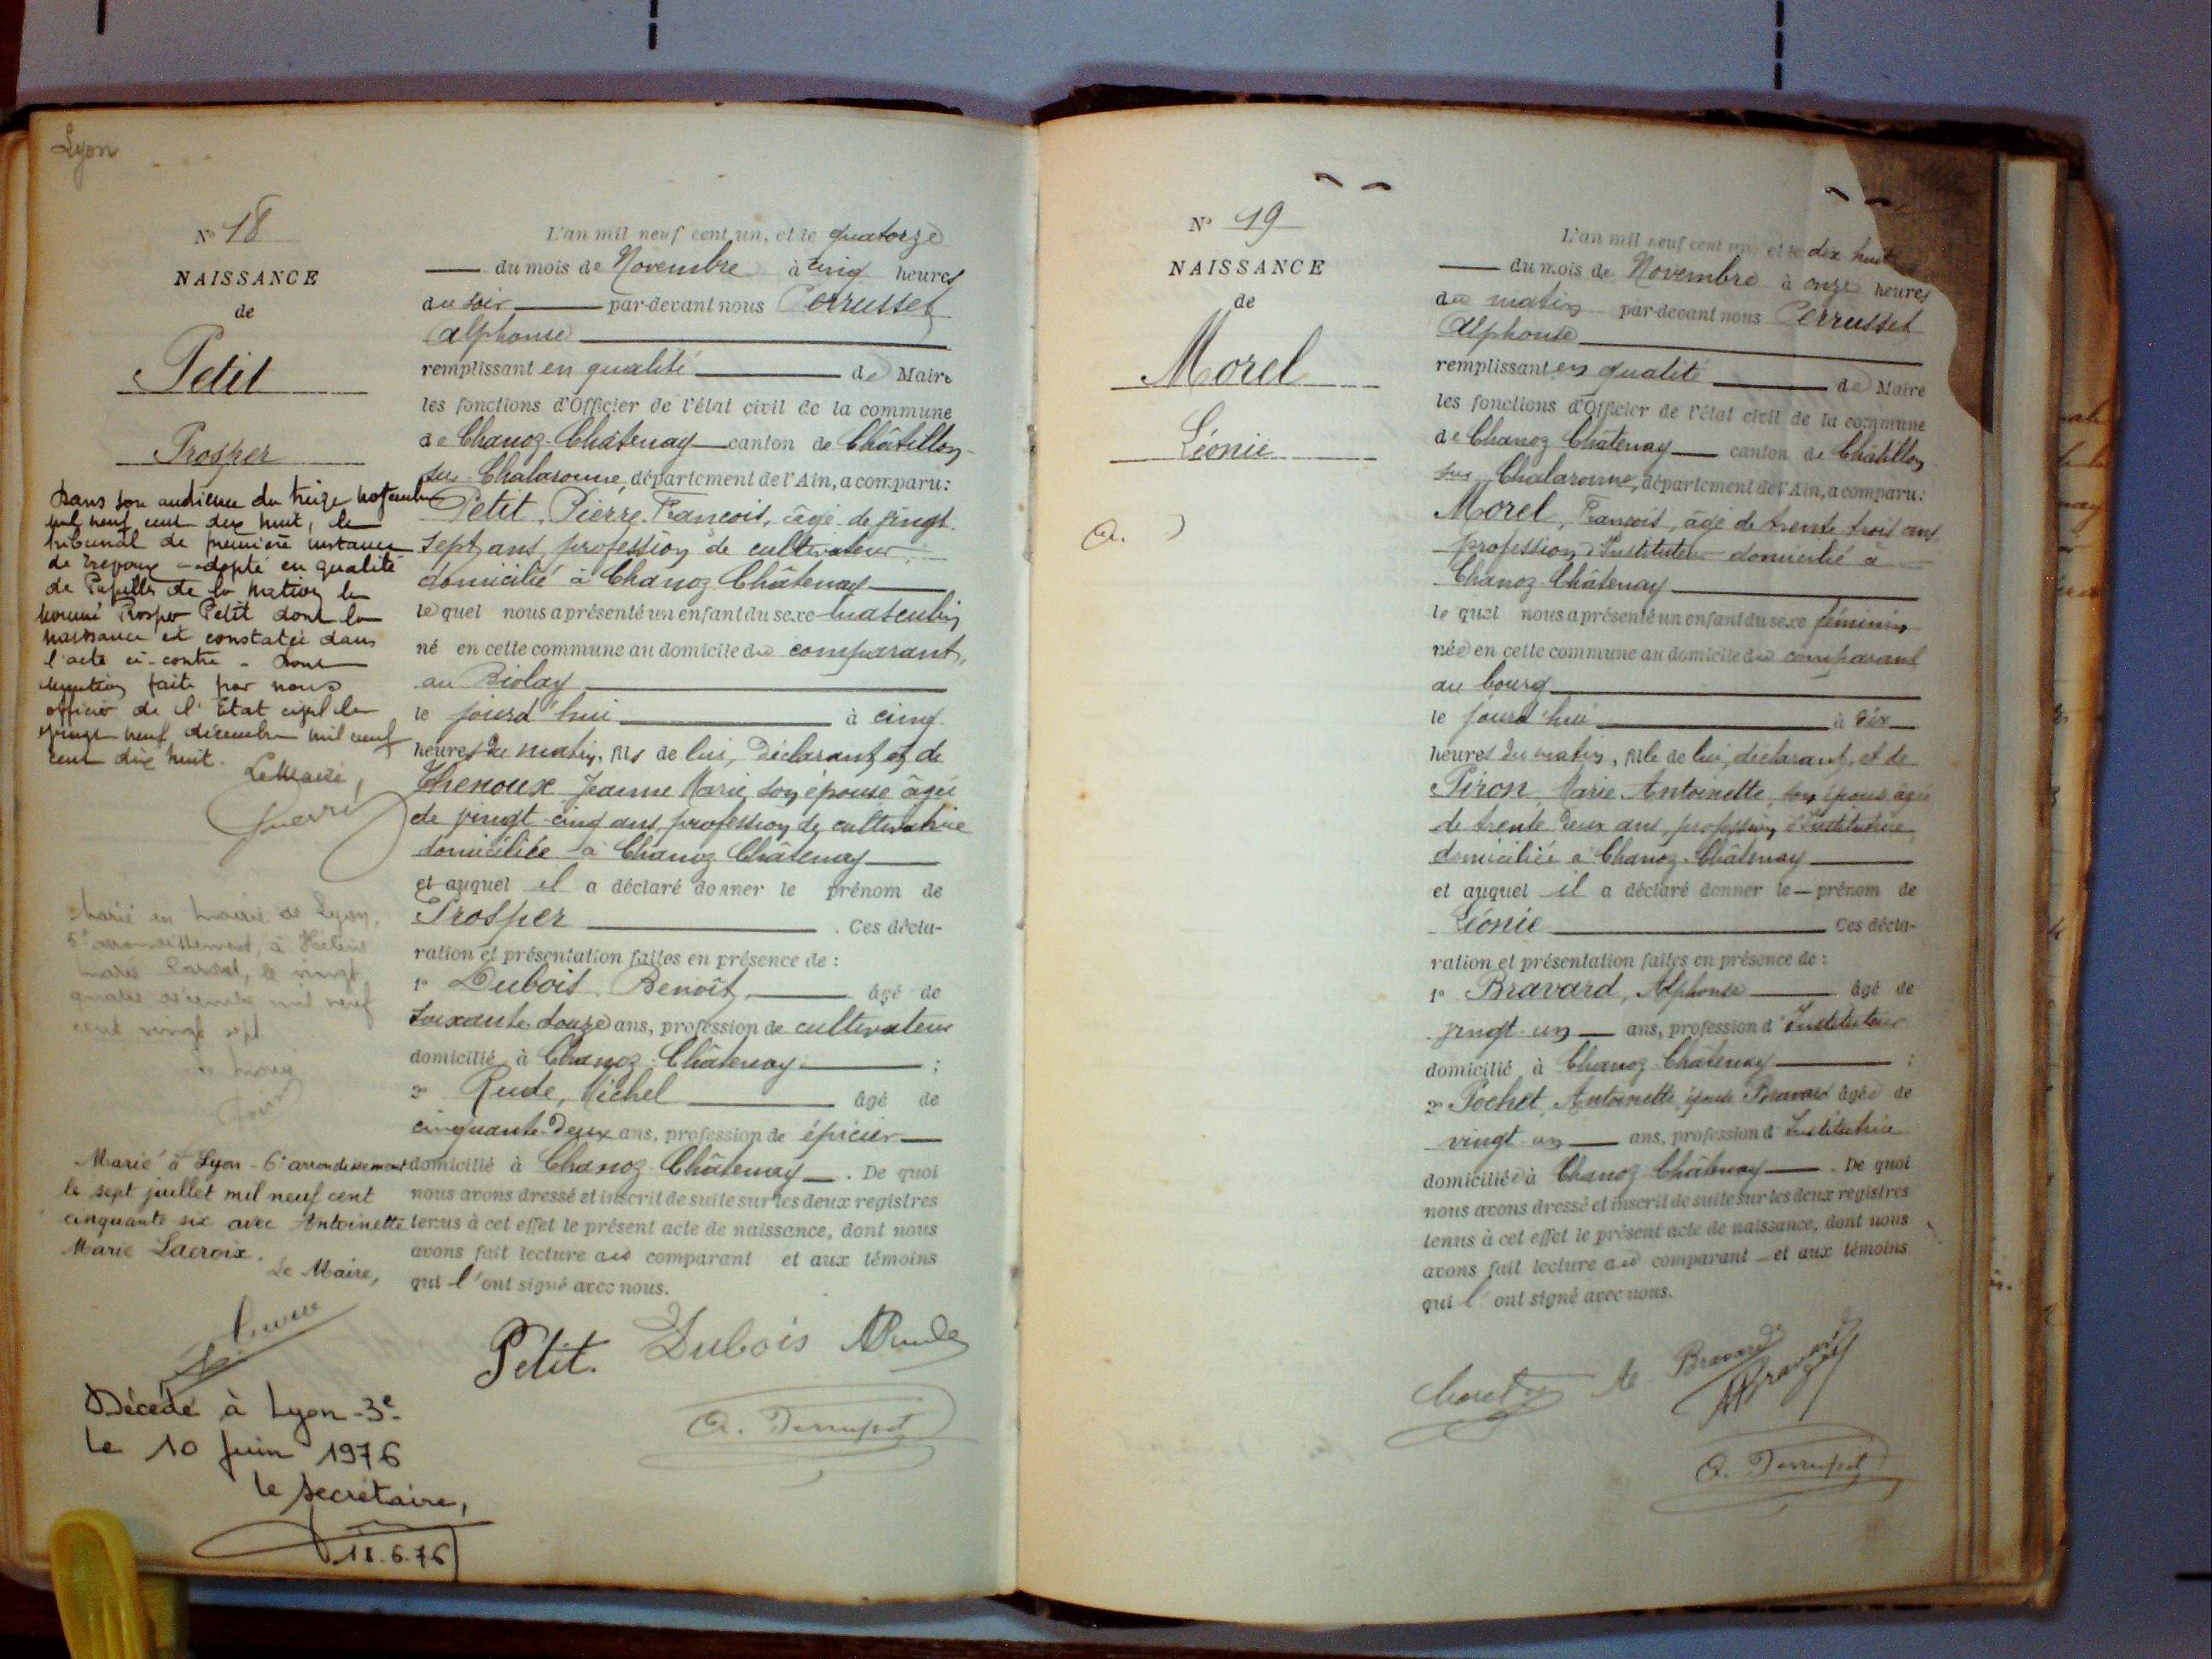 Lyon
N° 18
NAISSANCE
de
Petit
Prosper
Dans son audience du treize novembre
mil neuf cent dix huit, le
tribunal de première instance
de Trévoux adopté en qualité
de Pupille de la Nation le
nommé Prosper Petit dont la
naissance est constatée dans
l'acte ci-contre - Dont
Mention faite par nous
officier de l'Etat civil le
vingt neuf décembre mil neuf
cent dix huit.
Le Maire,
Marié en Mairie de Lyon,
5e arrondissement, à Hélène
Marie le vingt
quatre décembre mil neuf
cent vingt sept
Le Maire
Marié à Lyon - 6e arrondissement
le sept juillet mil neuf cent
cinquante six avec Antoinette
Marie Lacroix.
Le Maire,
Décédé à Lyon - 3e -
le 10 Juin 1976
le secrétaire,
18.6.76
L'an mil neuf cent un, et le quatorze
du mois de Novembre à cinq heures
du soir par-devant nous Perrusset
Alphonse
remplissant en qualité de Maire
les fonctions d'Officier de l'état civil de la commune
de Chanoz-Châtenay canton de Châtillon-
sur-Chalaronne, département de l'Ain, a comparu:
Petit, Pierre François, âgé de vingt
sept ans, profession de cultivateur
domicilié à Chanoz Châtenay
lequel nous a présenté un enfant du sexe masculin
né en cette commune au domicile du comparant,
au Biolay
le jourd'hui à cinq
heures du matin, fils de lui, déclarant, et de
Thenoux Jeanne Marie, son épouse âgée
de vingt-cinq ans, profession de cultivatrice
domiciliée à Chanoz Châtenay
et auquel il a déclaré donner le prénom de
Prosper . Ces décla-
ration et présentation faites en présence de :
1° Dubois, Benoît, âgé de
soixante-douze ans, profession de cultivateur
domicilié à Chanoz-Châtenay ;
2° Rude, Michel âgé de
cinquante-deux ans, profession de épicier
domicilié à Chanoz-Châtenay . De quoi
nous avons dressé et inscrit de suite sur les deux registres
tenus à cet effet le présent acte de naissance, dont nous
avons fait lecture au comparant et aux témoins
qui l'ont signé avec nous.
Petit. Dubois MRude
A. Perrusset
N° 19
NAISSANCE
de
Morel
Léonie
L'an mil neuf cent un, et le dix huit
du mois de Novembre à onze heures
du matin par-devant nous Perrusset
Alphonse
remplissant en qualité de Maire
les fonctions d'Officier de l'état civil de la commune
de Chanoz Châtenay canton de Châtillon
sur Chalaronne, département de l'Ain, a comparu:
Morel, François, âgé de trente trois ans
profession d'Instituteur domicilié à
Chanoz-Châtenay
lequel nous a présenté un enfant du sexe féminin
née en cette commune au domicile du comparant
au bourg
le jourd'hui à dix
heures du matin, fille de lui, déclarant, et de
Piron, Marie Antoinette, son épouse âgée
de trente deux ans, profession d'Institutrice
domiciliée à Chanoz-Châtenay
et auquel il a déclaré donner le prénom de
Léonie Ces décla-
ration et présentation faites en présence de :
1° Bravard, Alphonse âgé de
vingt-un ans, profession d'Instituteur
domicilié à Chanoz Châtenay ;
2° Pochet, Antoinette, épouse Bravard âgée de
vingt-un ans, profession d'Institutrice
domiciliée à Chanoz Châtenay . De quoi
nous avons dressé et inscrit de suite sur les deux registres
tenus à cet effet le présent acte de naissance, dont nous
avons fait lecture au comparant et aux témoins
qui l'ont signé avec nous.
Morel A Bravard ABravard
A. Perrusset